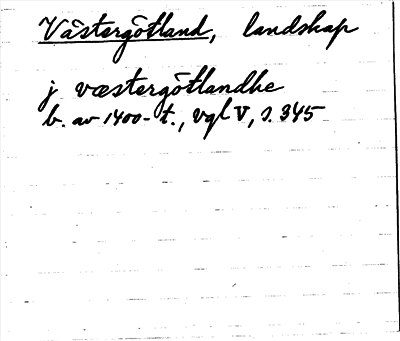 Västergötland, landskap
j væstergötlandhe
b. av 1400-t., vgl V, s. 345